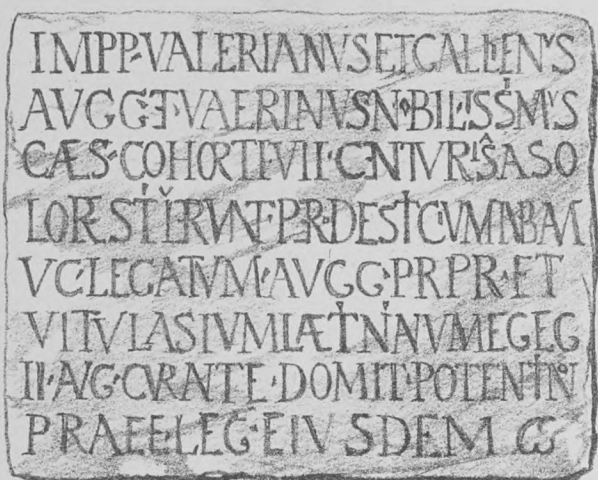 IMPP·VALERIANVS ET GALLIENVS
AVGG·ET·VALERINVS·NOBILISSIMVS
CÆS·COHORTI·VII·CENTVRIAS A SO
LO RESTITVERVNT·PER·DESTICIVM IVBAM
VC·LEGATVM·AVGG·PR PR·ET
VITVLASIVM LÆTINIANVM LEG LEG
II·AVG·CVRANTE·DOMIT·POTENTINO
PRAEF·LEG·EIVSDEM